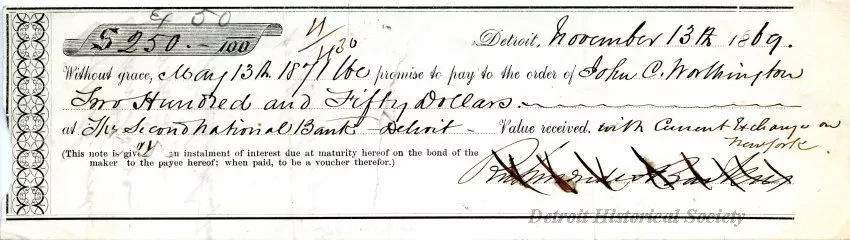 $250.—100
Detroit, November 13th 1869.
Without grace, May 13th 1871 We promise to pay to the order of John C. Worthington
Two Hundred and Fifty Dollars.
at The Second National Bank - Detroit - Value received. with Current Exchange on
New York
(This note is given an instalment of interest due at maturity hereof on the bond of the
maker to the payee hereof; when paid, to be a voucher therefor.)
Detroit Historical Society